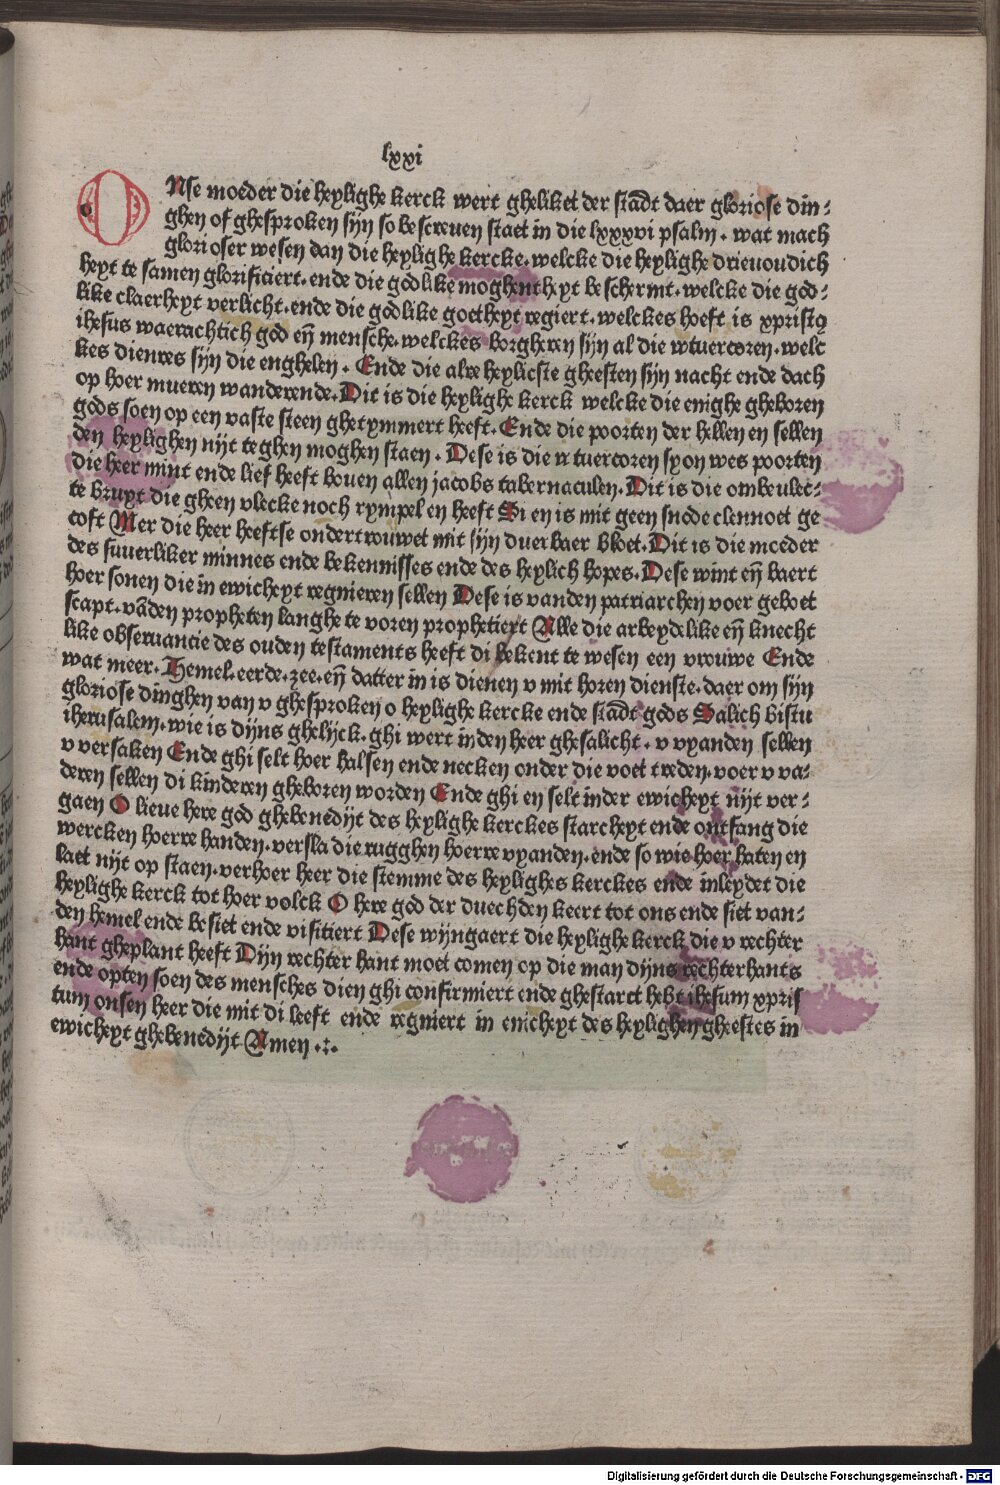 lxxi
ONse moeder die heylighe kerck wert gheliket der stādt daer gloriose din-
ghen of ghesproken sijn so bescreuen staet in die lxxxvi psalm. wat mach
glorioser wesen dan die heylighe kercke. welcke die heylighe drieuoudich
heyt te samen glorificiert. ende die godlike moghentheyt beschermt. welcke die god-
like claerheyt verlicht. ende die godlike goetheyt regiert. welckes hoeft is xpristꝰ
ihesus waerachtich god eñ mensche. welckes borgheren sijn al die wtuercoren. welc
kes dienres sijn die enghelen. Ende die alre heylicste gheesten sijn nacht ende dach
op hoer mueren wanderende. Dit is die heylighe kerck welcke die enighe gheboren
gods soen op een vaste steen ghetymmert heeft. Ende die poorten der hellen en sellen
den heylighen nijt teghen moghen staen. Dese is die wtuercoren syon wes poorten
die heer mint ende lief heeft bouen allen jacobs tabernaculen. Dit is die ombeulec-
te bruyt die gheen vlecke noch rympel en heeft Si en is mit geen snode clennoet ge
coft Mer die heer heeftse ondertrouwet mit sijn duerbaer bloet. Dit is die moeder
des suuerliker minnes ende bekennisses ende des heylich hopes. Dese wint eñ baert
hoer sonen die in ewicheyt regnieren sellen Dese is vanden patriarchen voer geboet
scapt. vāden propheten langhe te voren prophetiert Alle die arbeydelike eñ knecht
like obseruancie des ouden testaments heeft di bekent te wesen een vrouwe Ende
wat meer. Hemel. eerde. zee. eñ datter in is dienen v mit horen dienste. daer om sijn
gloriose dinghen van v ghesproken o heylighe kercke ende stādt gods Salich bistu
iherusalem. wie is dijns ghelijck. ghi wert inden heer ghesalicht. v vyanden sellen
v versaken Ende ghi selt hoer halsen ende necken onder die voet treden. voer v va-
deren sellen di kinderen gheboren worden Ende ghi en selt inder ewicheyt nijt ver-
gaen O lieue here god ghebenedijt des heylighe kerckes starcheyt ende ontfang die
wercken hoerre handen. versla die rugghen hoerre vyanden. ende so wie hoer haten en
laet nijt op staen. verhoer heer die stemme des heylighes kerckes ende inleydet die
heylighe kerck tot hoer volck O here god der duechden keert tot ons ende siet van-
den hemel ende besiet ende visitiert Dese wijngaert die heylighe kerck die v rechter
hant gheplant heeft Dijn rechter hant moet comen op die man dijns rechterhants
ende opten soen des mensches dien ghi confirmiert ende ghestarct hebt ihesum xpris
tum onsen heer die mit di leeft ende regniert in enicheyt des heylighen gheestes in
ewicheyt ghebenedijt Amen .:.
Digitalisierung gefördert durch die Deutsche Forschungsgemeinschaft - DFG